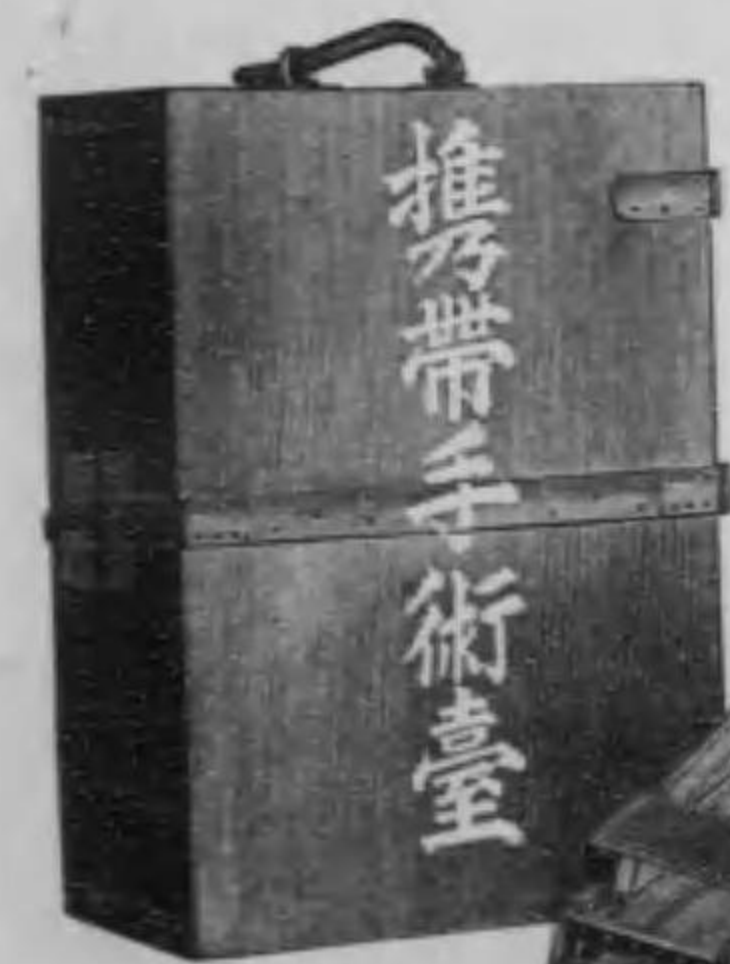 携帶手術臺